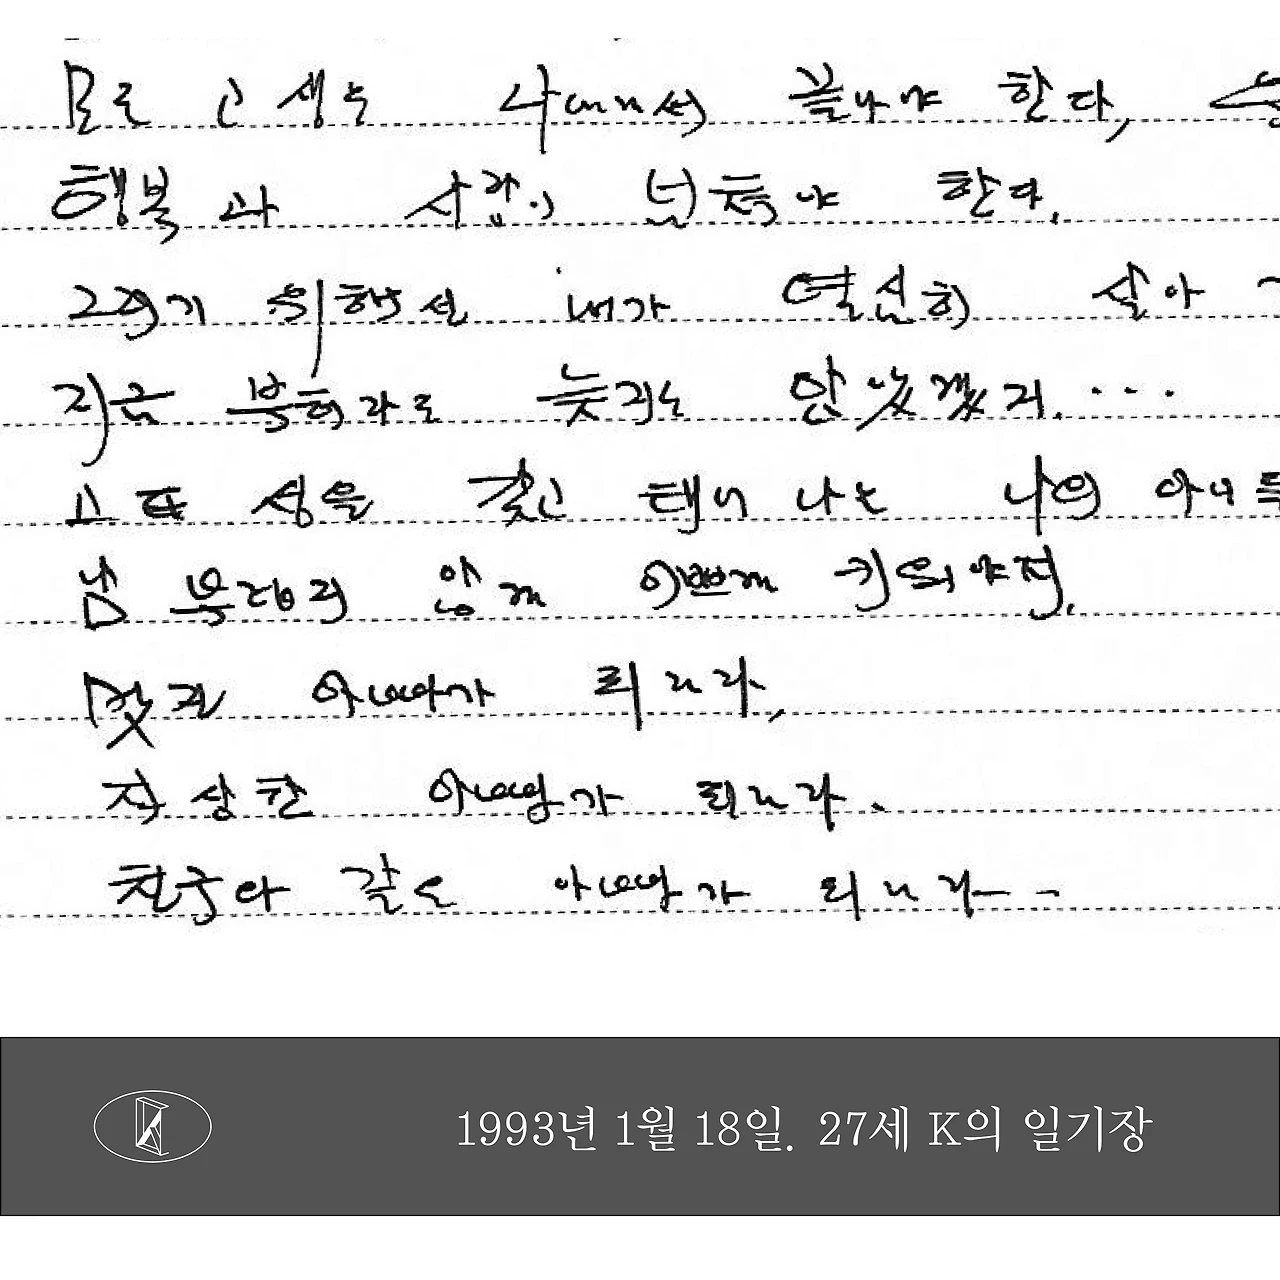 모든 고생은 나에게서 끝나야 한다,
행복과 사랑이 넘쳐야 한다.
그렇기 위해선 내가 열심히 살아
지금 부터라도 늦지는 않았겠지....
고 또 성을 갖고 태어나는 나의 아이들
남 부럽지 않게 이쁘게 키워야지.
멋진 아빠가 되리라,
자상한 아빠가 되리라.
친구와 같은 아빠가 되리라--
K
1993년 1월 18일. 27세 K의 일기장